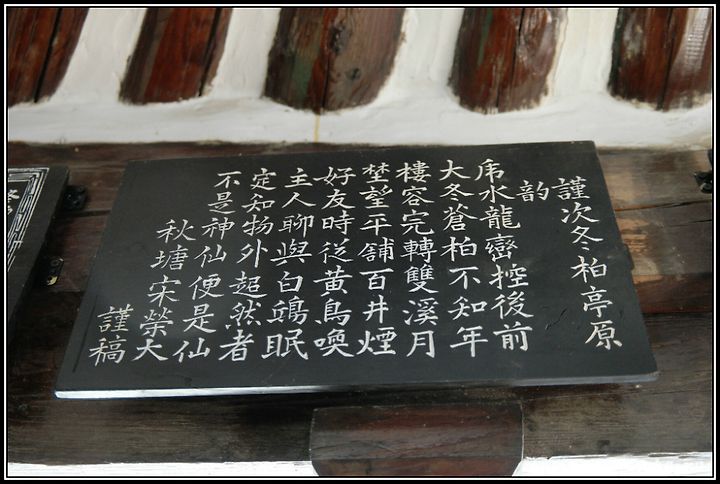 謹次冬柏亭原
韵
虎水龍巒控後前
大冬蒼柏不知年
樓容完轉雙溪月
埜望平舖百井煙
好友時從黃鳥喚
主人聊與白鷗眠
定知物外超然者
不是神仙便是仙
秋塘宋榮大
謹稿